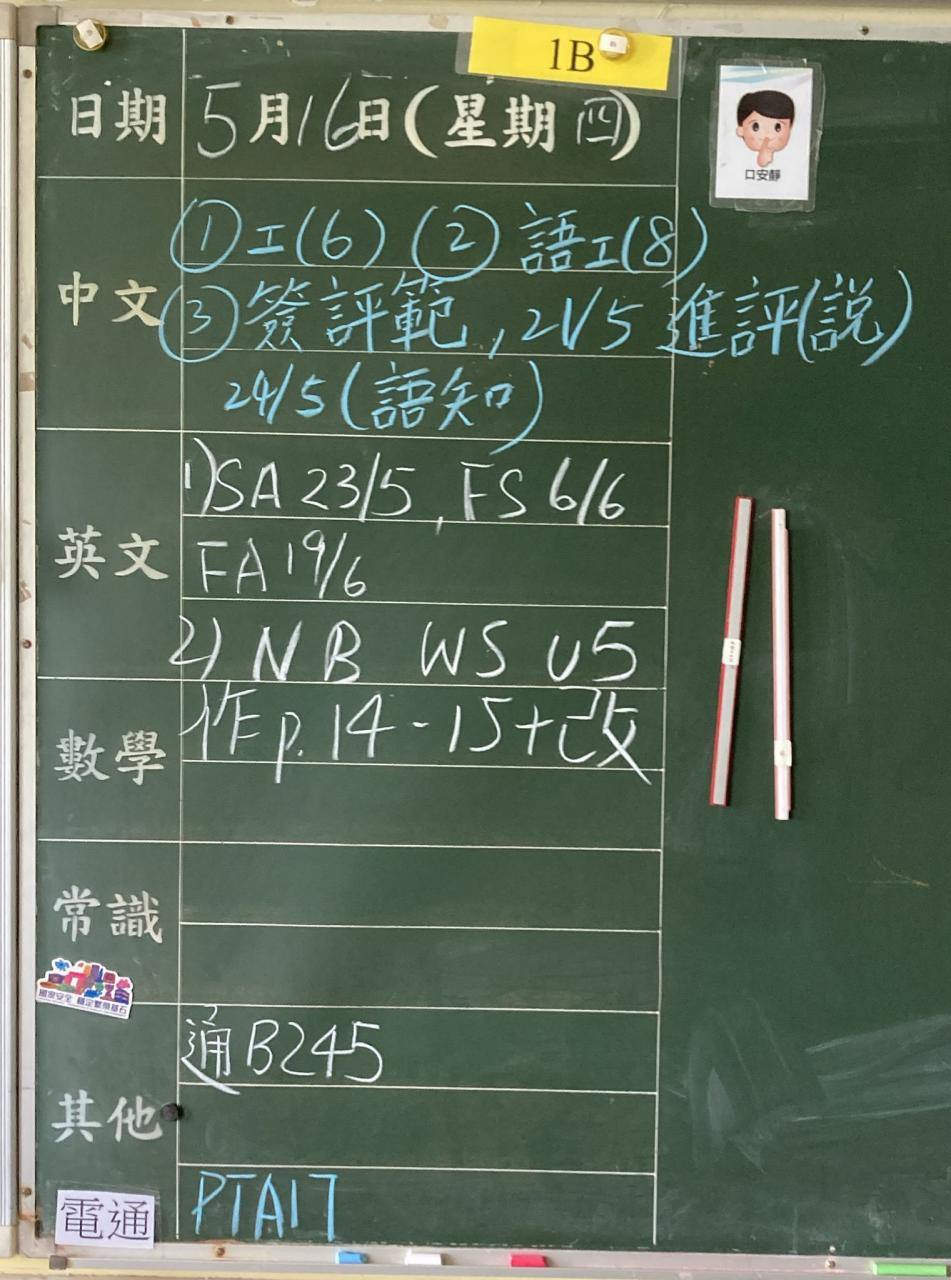 1B
日期 5月16日(星期四)
口安靜
中文 ① 工(6) ② 語工(8)
③ 簽評範, 21/5 進評(説)
24/5 (語知)
英文 1) SA 23/5, FS 6/6
FA 19/6
2) NB WS U5
數學 作 p. 14 - 15 + 改
常識
國家安全 穩定繁榮基石
其他 通 B245
電通 PTA17